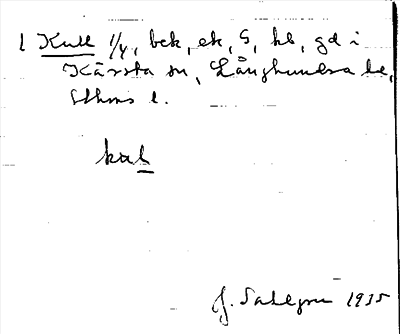 1 Kull 1/4, bck, ek, S, hb, gd i
Kårsta sn, Långhundra hd,
Sthms l.
kul
J. Sahlgren 1935